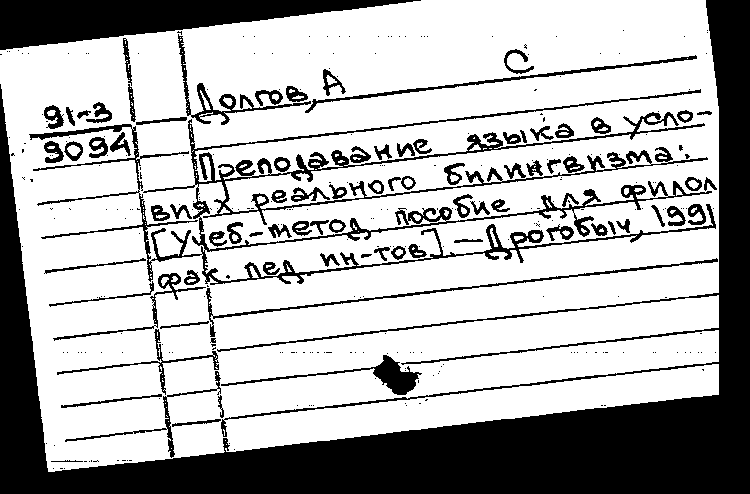 С
91-3
9094
Долгов, А
Преподавание языка в усло-
виях реального билингвизма:
[Учеб.-метод. пособие для филол
фак. пед. ин-тов]. — Дрогобыч, 1991